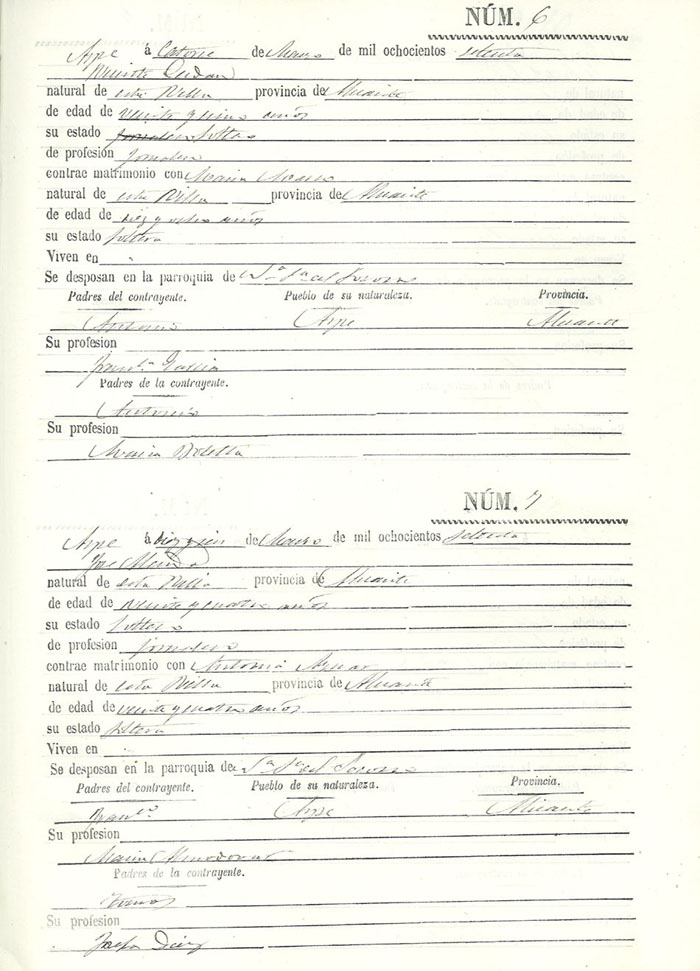 NÚM. 6
Aspe á Catorce de Marzo de mil ochocientos setenta
Vicente
natural de esta Villa provincia de Alicante
de edad de veinte y cinco años
su estado Jornalero Soltero
de profesion Jornalero
contrae matrimonio con Maria
natural de esta Villa provincia de Alicante
de edad de diez y ocho años
su estado soltera
Viven en
Se desposan en la parroquia de Nª Sª del Socorro
Padres del contrayente. Pueblo de su naturaleza. Provincia.
Antonio Aspe Alicante
Su profesion
Franca Garcia
Padres de la contrayente.
Antonio
Su profesion
Maria Botella
NÚM. 7
Aspe á de Marzo de mil ochocientos setenta
Jose
natural de esta Villa provincia de Alicante
de edad de veinte y cuatro años
su estado soltero
de profesion jornalero
contrae matrimonio con Antonia Aznar
natural de esta Villa provincia de Alicante
de edad de veinte y cuatro años
su estado soltera
Viven en
Se desposan en la parroquia de Nª Sª del Socorro
Padres del contrayente. Pueblo de su naturaleza. Provincia.
Franco Aspe Alicante
Su profesion
Maria Almodovar
Padres de la contrayente.
Tomas
Su profesion
Josefa Diez